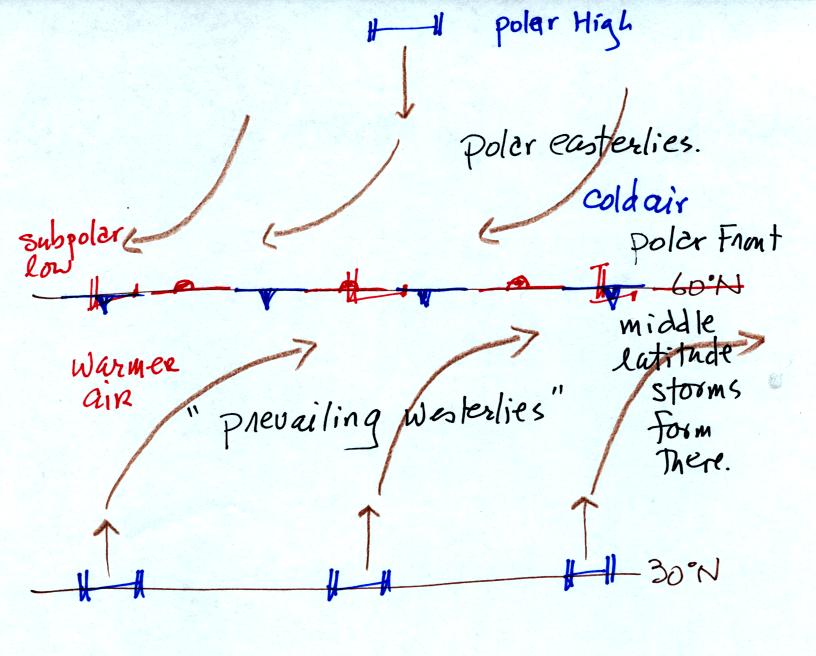 polar High
polar easterlies.
cold air
subpolar
low
polar Front
60°N
middle
latitude
storms
form
There.
warmer
air
"prevailing westerlies"
30°N